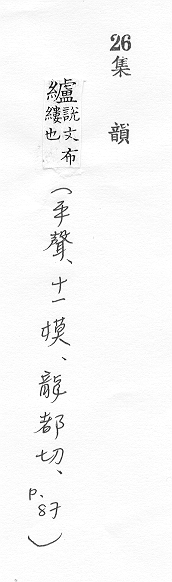 26集韻
纑說文布縷也(平聲、十一模、龍都切、p.87)